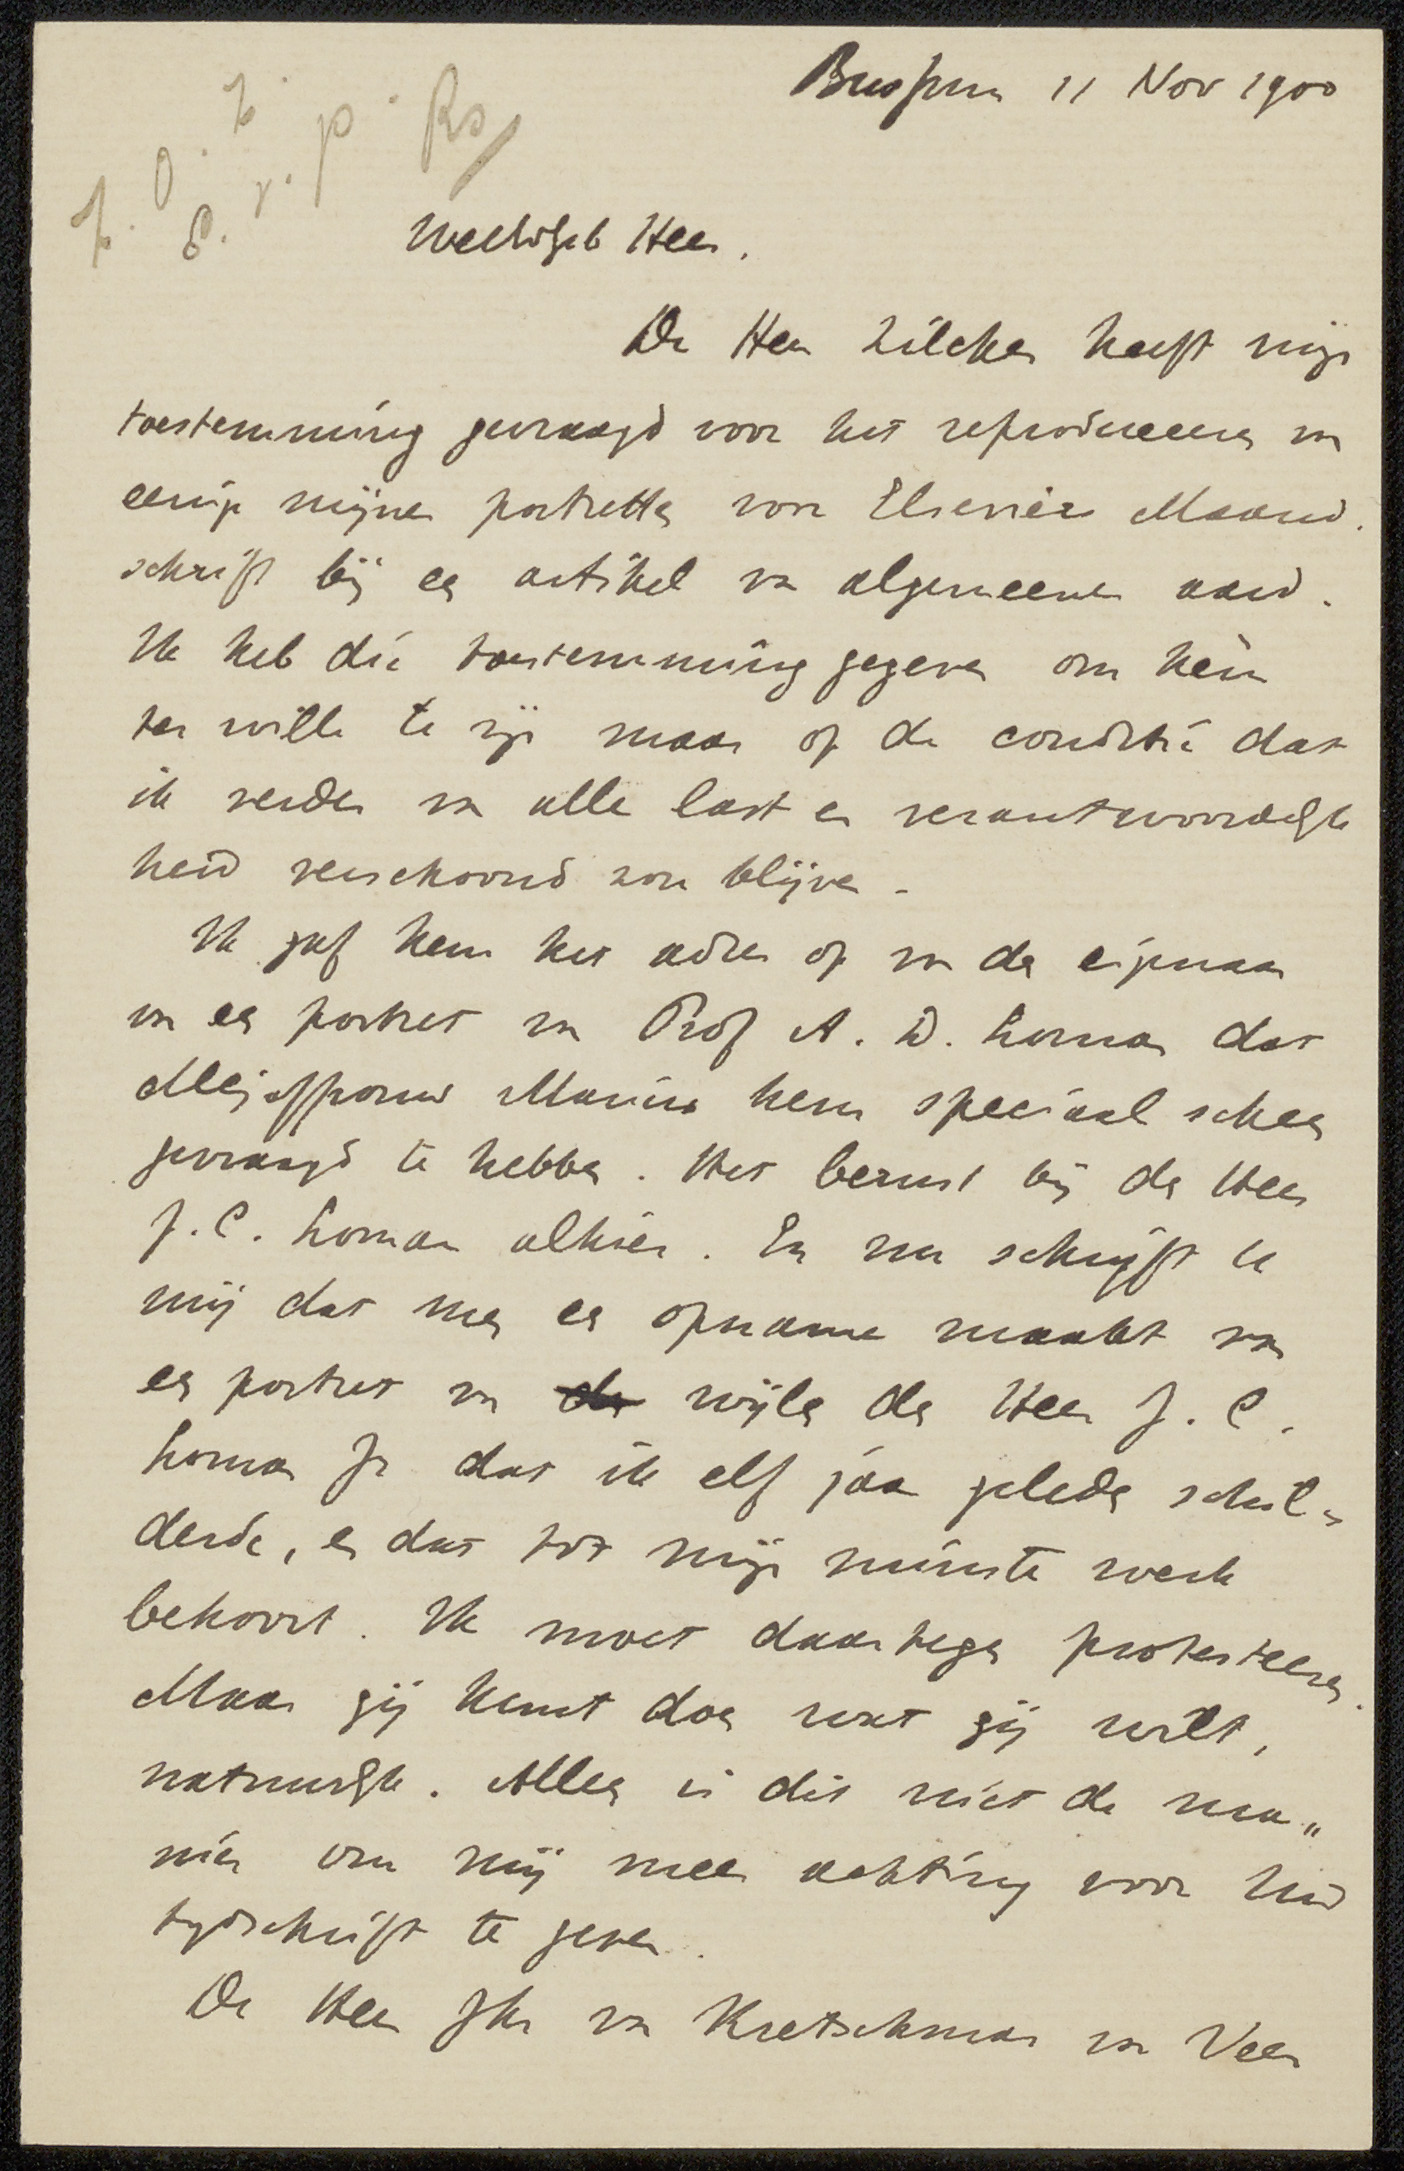 Bussum 11 Nov 1900
WelEdGeb Heer.
De Heer Zilcken heeft mijn
toestemming gevraagd voor het reproduceeren van
eenige mijner portretten voor Elseviers Maand.
schrift bij een artikel van algemeenen aard.
Ik heb die toestemming gegeven om hem
ter wille te zijn maar op de conditie dat
ik verder van alle last en verantwoordelijk
heid verschoond zou blijven.
Ik gaf hem het adres op van den eigenaar
van een portret van Prof A. D. Loman dat
Mejuffrouw Marius hem speciaal scheen
gevraagd te hebben. Het berust bij den Heer
J. C. Loman alhier. En nu schrijft U
mij dat men een opname maakt van
een portret van den wijlen den Heer J. C.
Loman Jr dat ik elf jaar geleden schil-
derde, en dat tot mijn minste werk
behoort. Ik moet daartegen protesteeren.
Maar gij kunt doen wat gij wilt,
natuurlijk. Alleen is dit niet de ma„
nier om mij meer achting voor Uw
tijdschrift te geven.
De Heer Jhr van Kretschmar van Veen